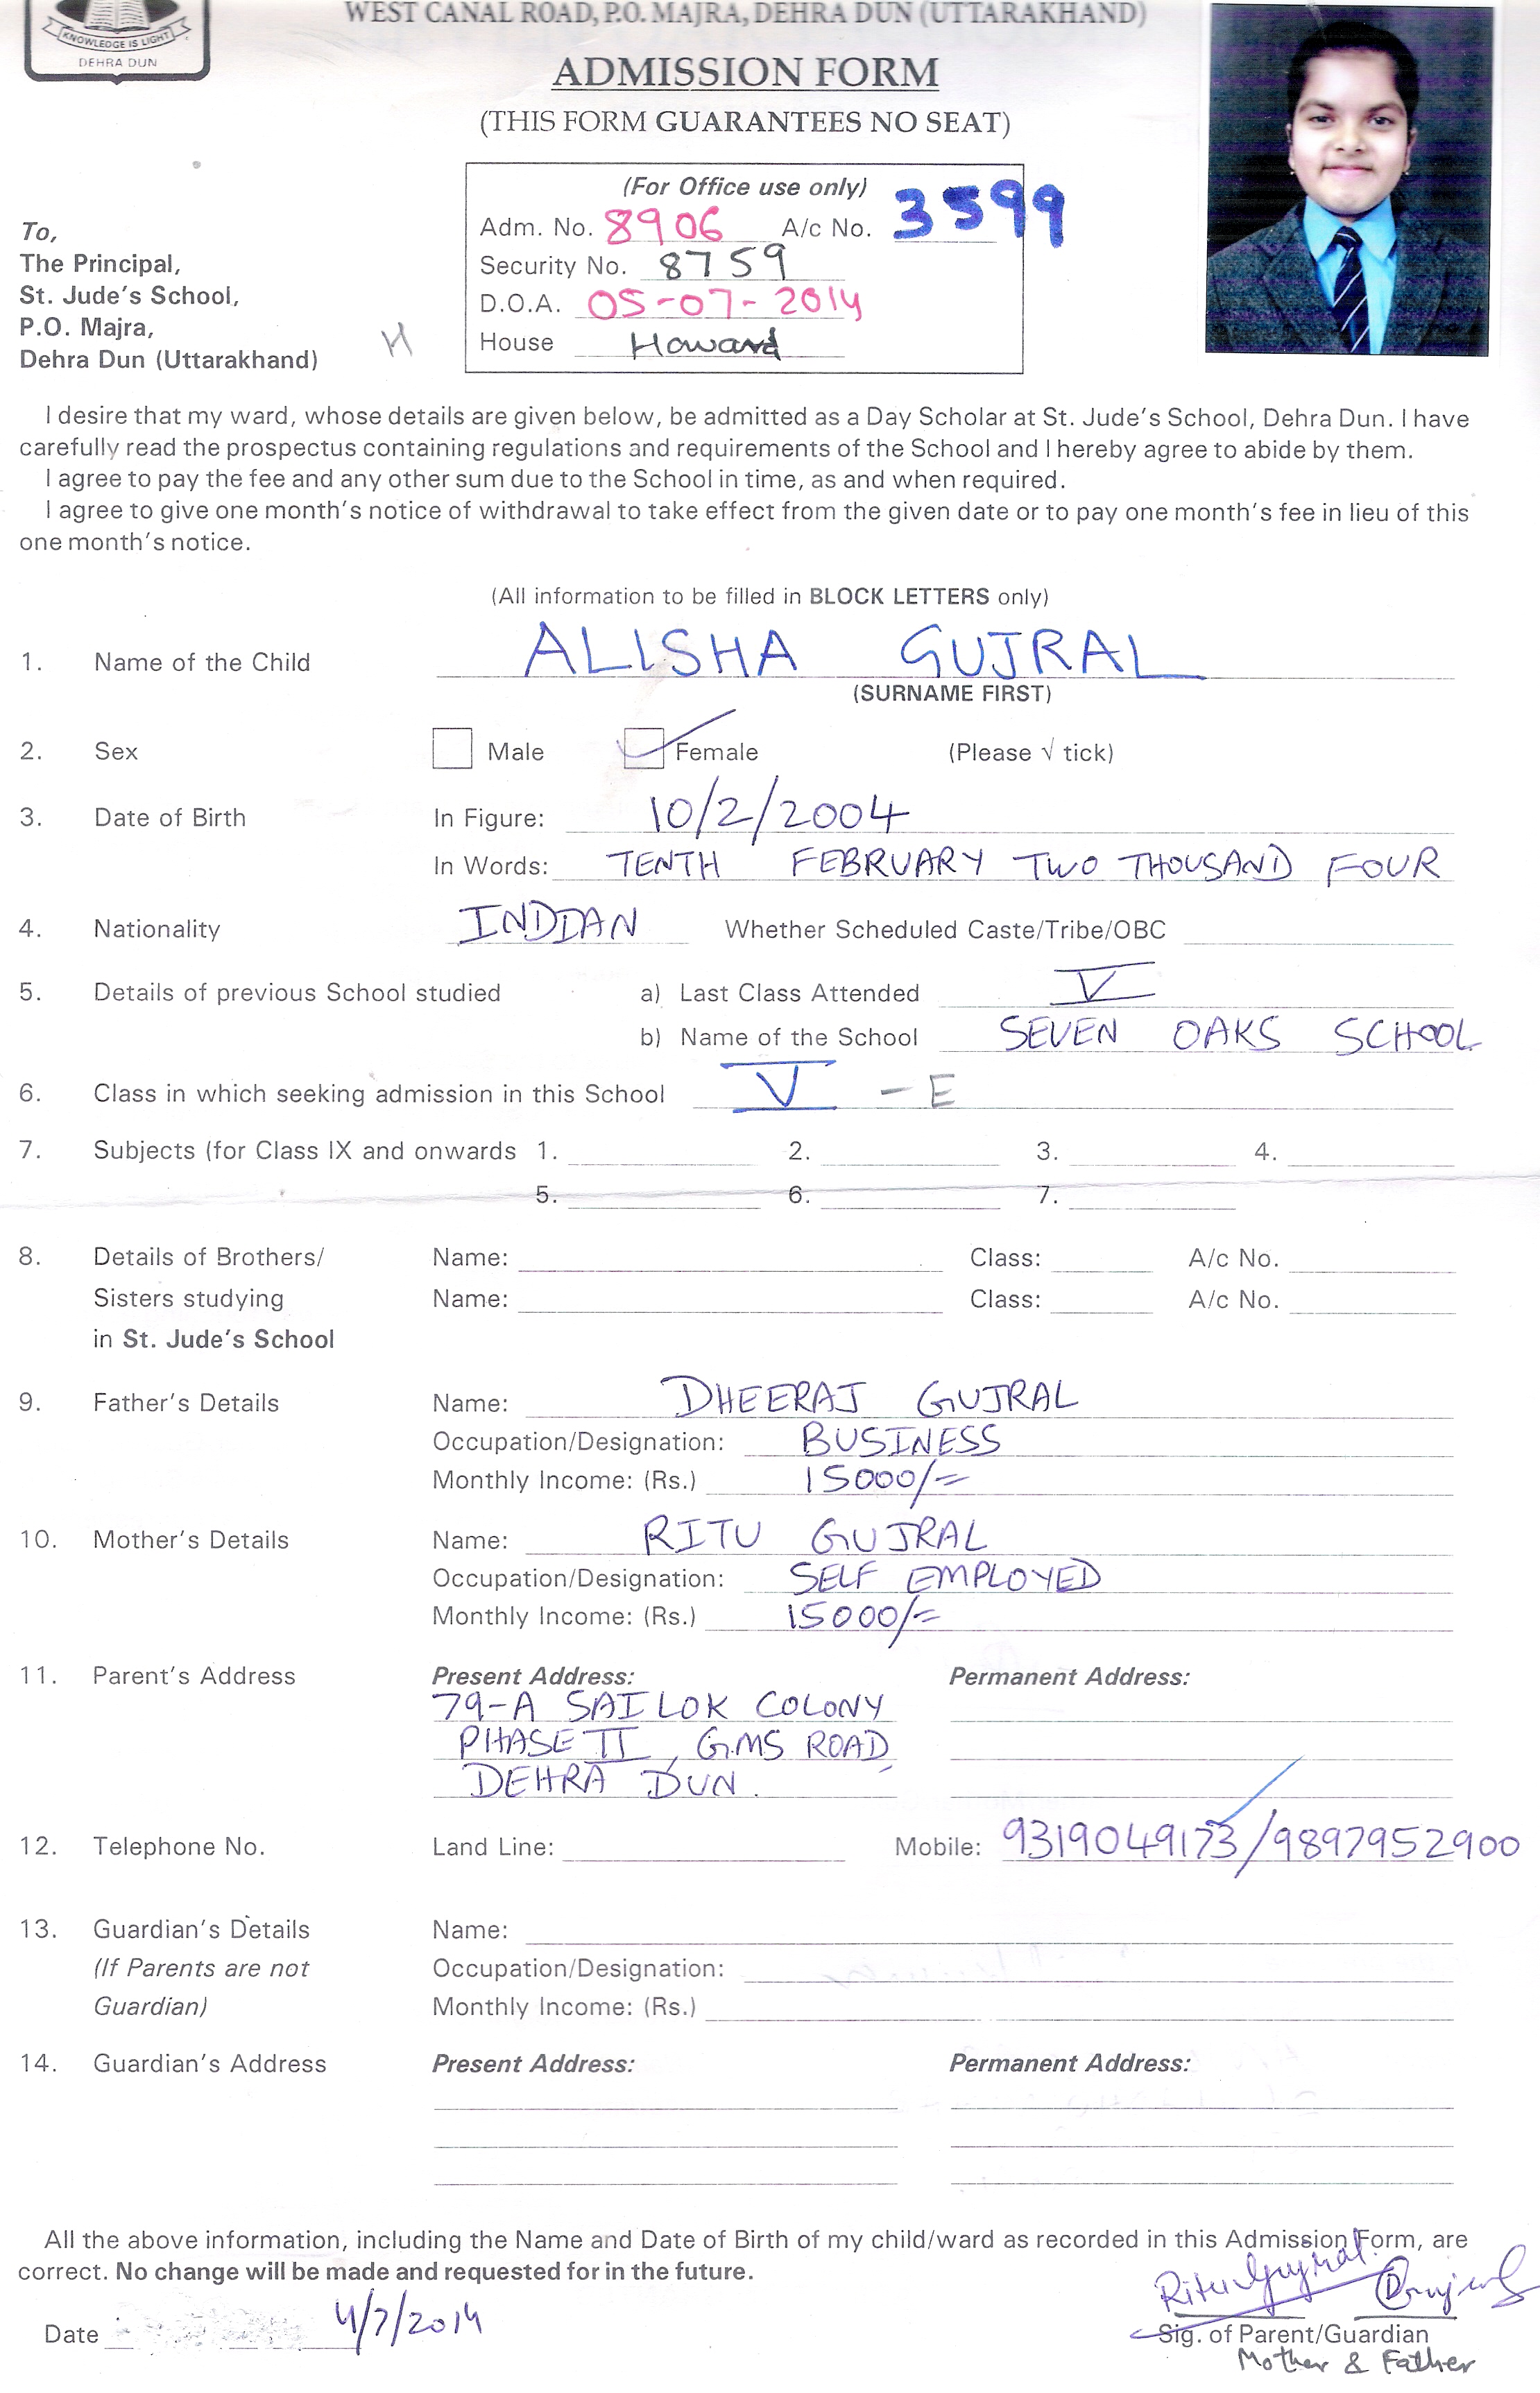 KNOWLEDGE IS LIGHT
DEHRA DUN
WEST CANAL ROAD, P.O. MAJRA, DEHRA DUN (UTTARAKHAND)
ADMISSION FORM
(THIS FORM GUARANTEES NO SEAT)
(For Office use only)
Adm. No. 8906 A/c No. 3599
Security No. 8759
D.O.A. 05-07-2014
House Howard
To,
The Principal,
St. Jude's School,
P.O. Majra,
Dehra Dun (Uttarakhand)
H
I desire that my ward, whose details are given below, be admitted as a Day Scholar at St. Jude's School, Dehra Dun. I have
carefully read the prospectus containing regulations and requirements of the School and I hereby agree to abide by them.
I agree to pay the fee and any other sum due to the School in time, as and when required.
I agree to give one month's notice of withdrawal to take effect from the given date or to pay one month's fee in lieu of this
one month's notice.
(All information to be filled in BLOCK LETTERS only)
1. Name of the Child ALISHA GUJRAL
(SURNAME FIRST)
2. Sex Male Female (Please √ tick)
3. Date of Birth In Figure: 10/2/2004
In Words: TENTH FEBRUARY TWO THOUSAND FOUR
4. Nationality INDIAN Whether Scheduled Caste/Tribe/OBC
5. Details of previous School studied a) Last Class Attended V
b) Name of the School SEVEN OAKS SCHOOL
6. Class in which seeking admission in this School V - E
7. Subjects (for Class IX and onwards 1. 2. 3. 4.
5. 6. 7.
8. Details of Brothers/ Name: Class: A/c No.
Sisters studying Name: Class: A/c No.
in St. Jude's School
9. Father's Details Name: DHEERAJ GUJRAL
Occupation/Designation: BUSINESS
Monthly Income: (Rs.) 15000/=
10. Mother's Details Name: RITU GUJRAL
Occupation/Designation: SELF EMPLOYED
Monthly Income: (Rs.) 15000/=
11. Parent's Address Present Address: Permanent Address:
79-A SAI LOK COLONY
PHASE II, G.MS ROAD,
DEHRA DUN.
12. Telephone No. Land Line: Mobile: 9319049173/9897952900
13. Guardian's Details Name:
(If Parents are not Occupation/Designation:
Guardian) Monthly Income: (Rs.)
14. Guardian's Address Present Address: Permanent Address:
All the above information, including the Name and Date of Birth of my child/ward as recorded in this Admission Form, are
correct. No change will be made and requested for in the future.
Ritu Gujral
Date 4/7/2014
Sig. of Parent/Guardian
Mother & Father